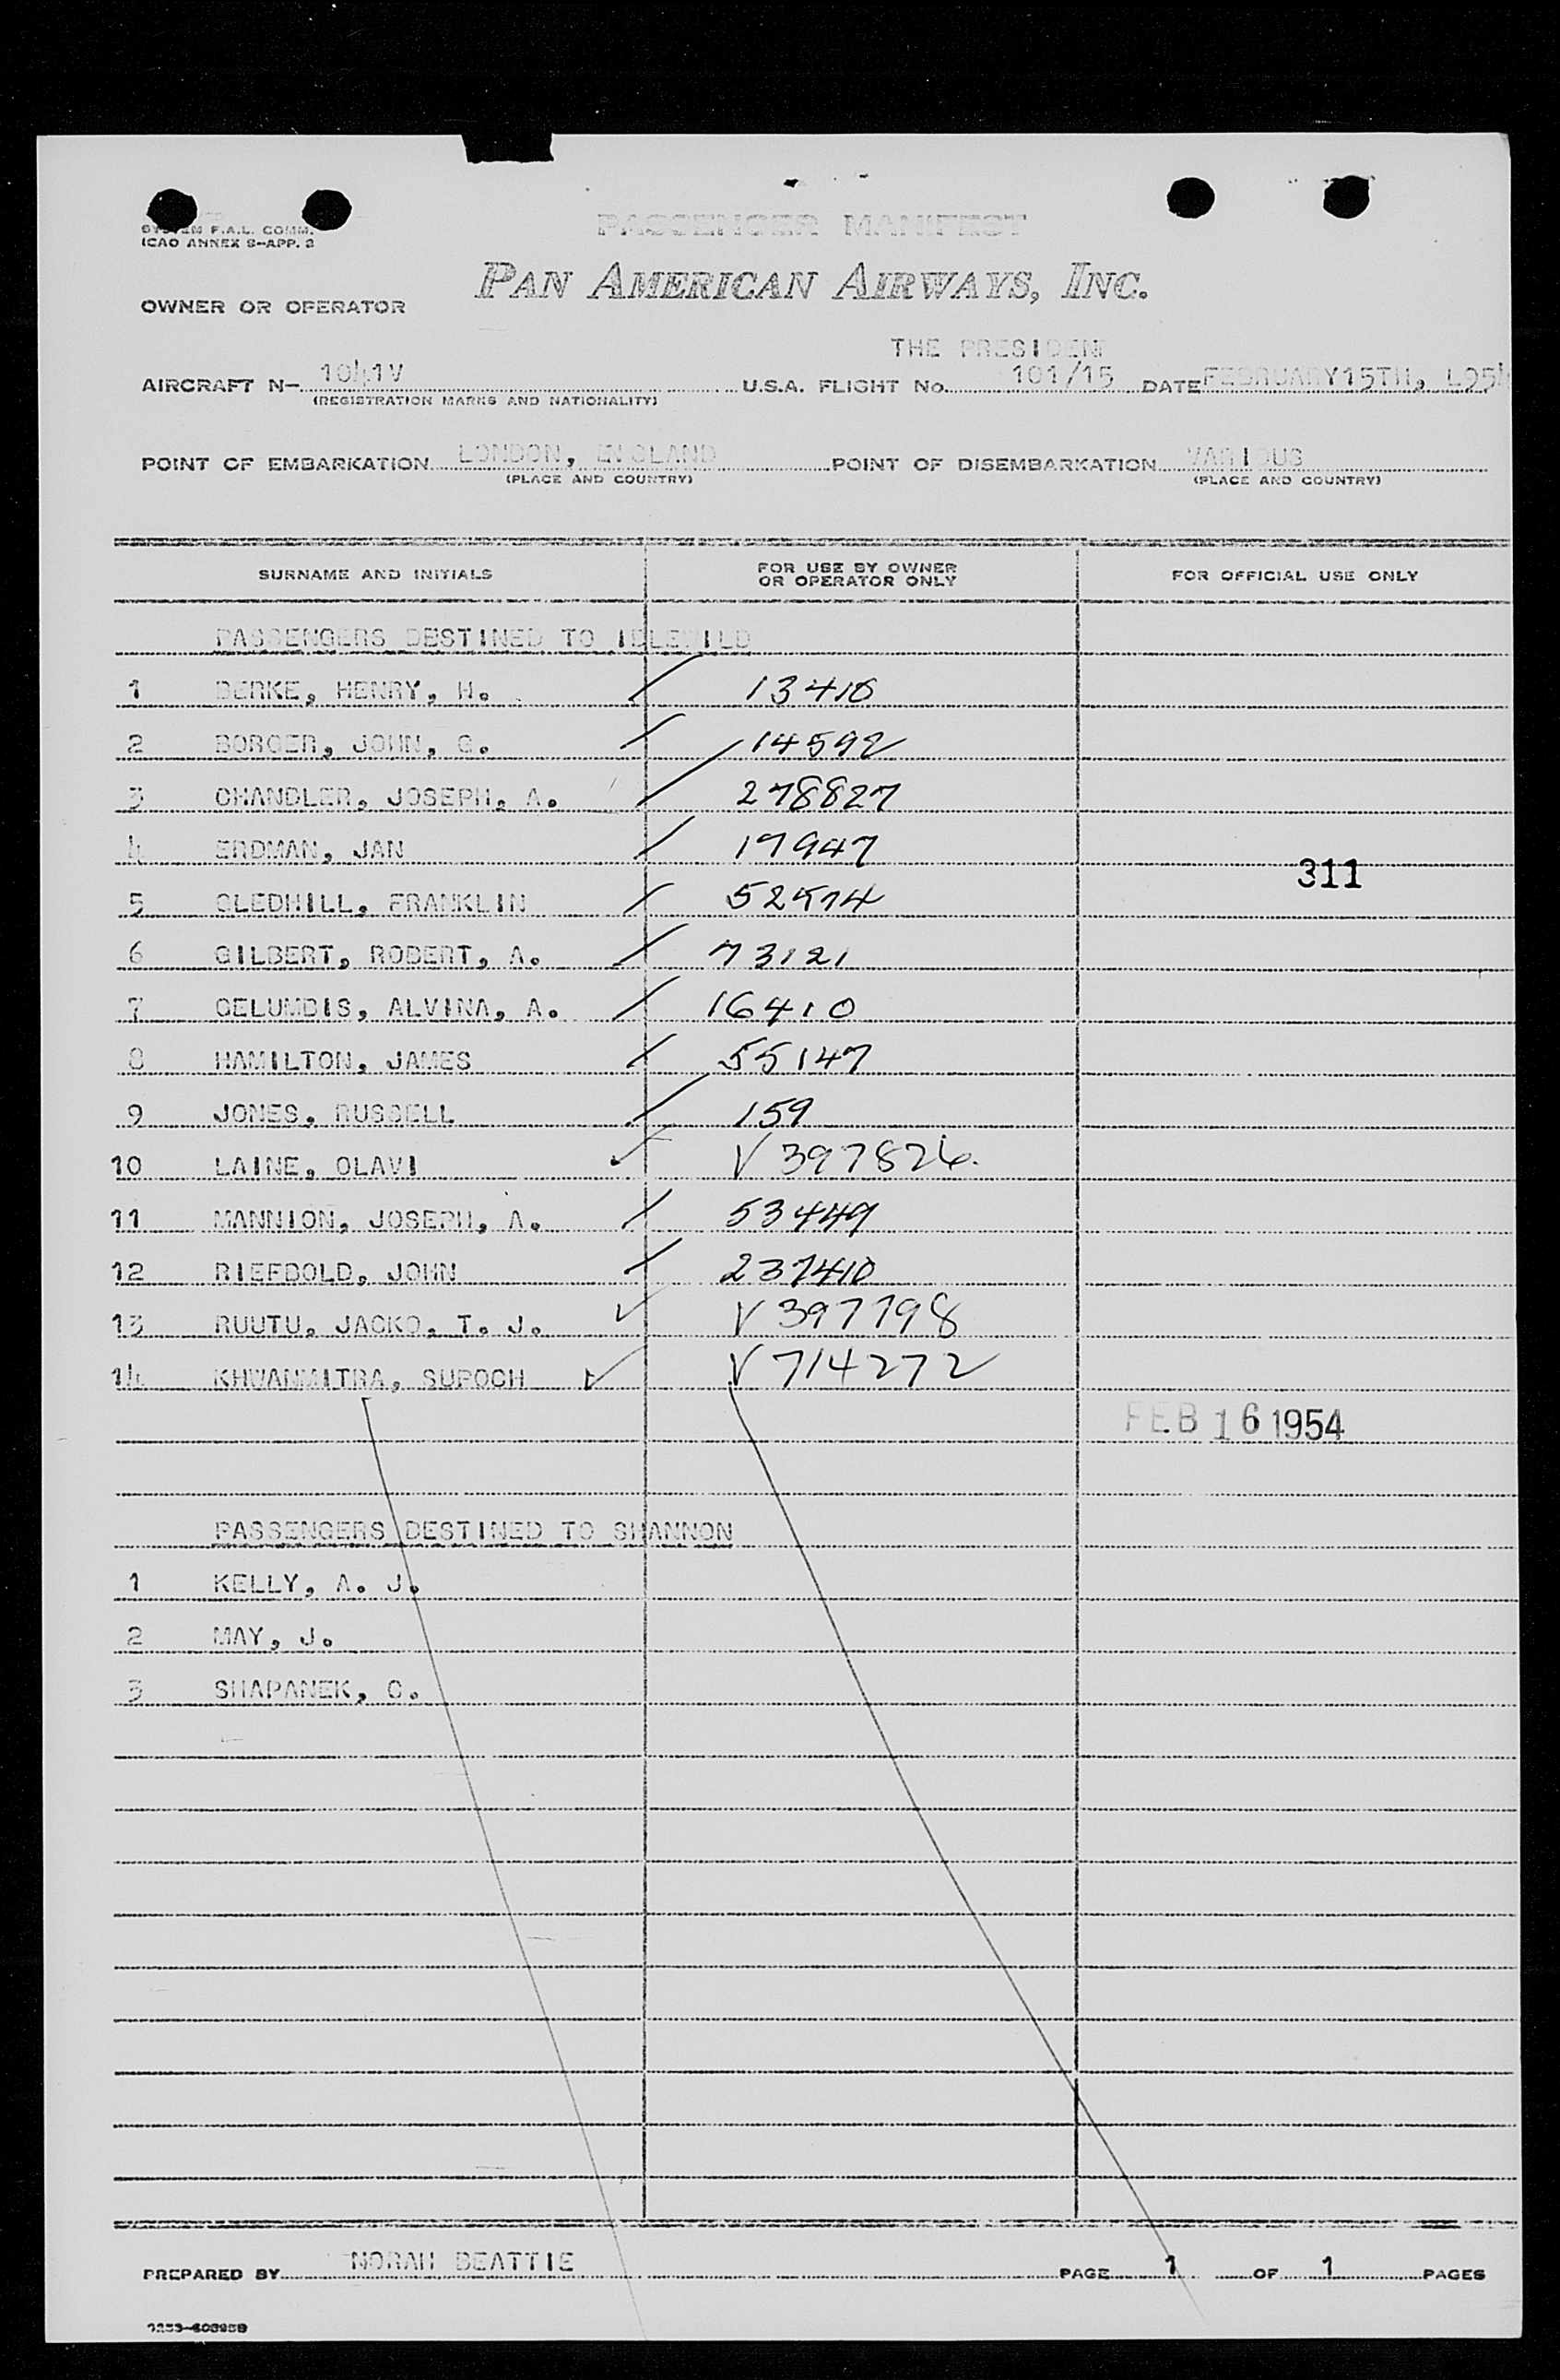 SYSTEM F.A.L. COMM.
ICAO ANNEX 9-APP. 3
PASSENGER MANIFEST
PAN AMERICAN AIRWAYS, INC.
OWNER OR OPERATOR
THE PRESIDENT
AIRCRAFT N- 1041V U.S.A. FLIGHT No. 101/15 DATE FEBRUARY15TH, L954
(REGISTRATION MARKS AND NATIONALITY)
POINT OF EMBARKATION LONDON, ENGLAND POINT OF DISEMBARKATION VARIOUS
(PLACE AND COUNTRY) (PLACE AND COUNTRY)
SURNAME AND INITIALS FOR USE BY OWNER OR OPERATOR ONLY FOR OFFICIAL USE ONLY
PASSENGERS DESTINED TO IDLEWILD
1 BERKE, HENRY, H. 13410
2 BORGER, JOHN, G. 14592
3 CHANDLER, JOSEPH, A. 278827
4 ERDMAN, JAN 19947
311
5 GLEDHILL, FRANKLIN 52574
6 GILBERT, ROBERT, A. 73121
7 GELUMBIS, ALVINA, A. 16410
8 HAMILTON, JAMES 55147
9 JONES, RUSSELL 159
10 LAINE, OLAVI V 397826
11 MANNION, JOSEPH, A. 53449
12 RIEFBOLD, JOHN 237410
13 RUUTU, JACKO, T. J. V 397798
14 KHWANMITRA, SUPOCH V 714272
FEB 16 1954
PASSENGERS DESTINED TO SHANNON
1 KELLY, A. J.
2 MAY, J.
3 SHAPANEK, C.
PREPARED BY NORAH BEATTIE PAGE 1 OF 1 PAGES